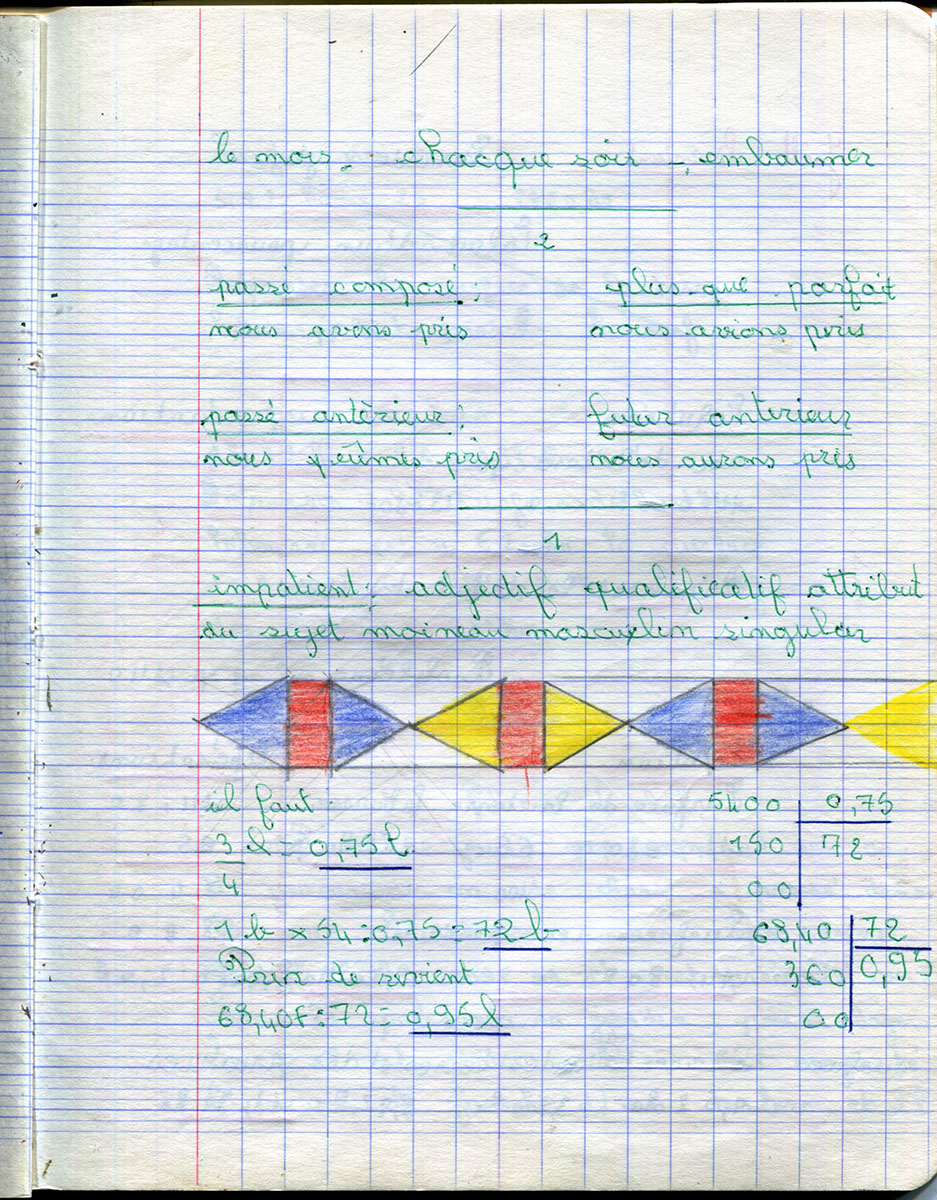 le mois - chacque soir - embaumer
2
passé composé : plus-que parfait
nous avons pris nous avions pris
passé antèrieur : futur anterieur
nous eûmes pris nous aurons pris
1
impatient : adjectif qualificatif attribut
du sujet moineau masculin singulier
il faut :
3/4 l = 0,75 l
1 b × 54 : 0,75 = 72 b
Prix de revient
68,40F : 72 = 0,95 l
5400 | 0,75
150 | 72
00
68,40 | 72
360 | 0,95
00